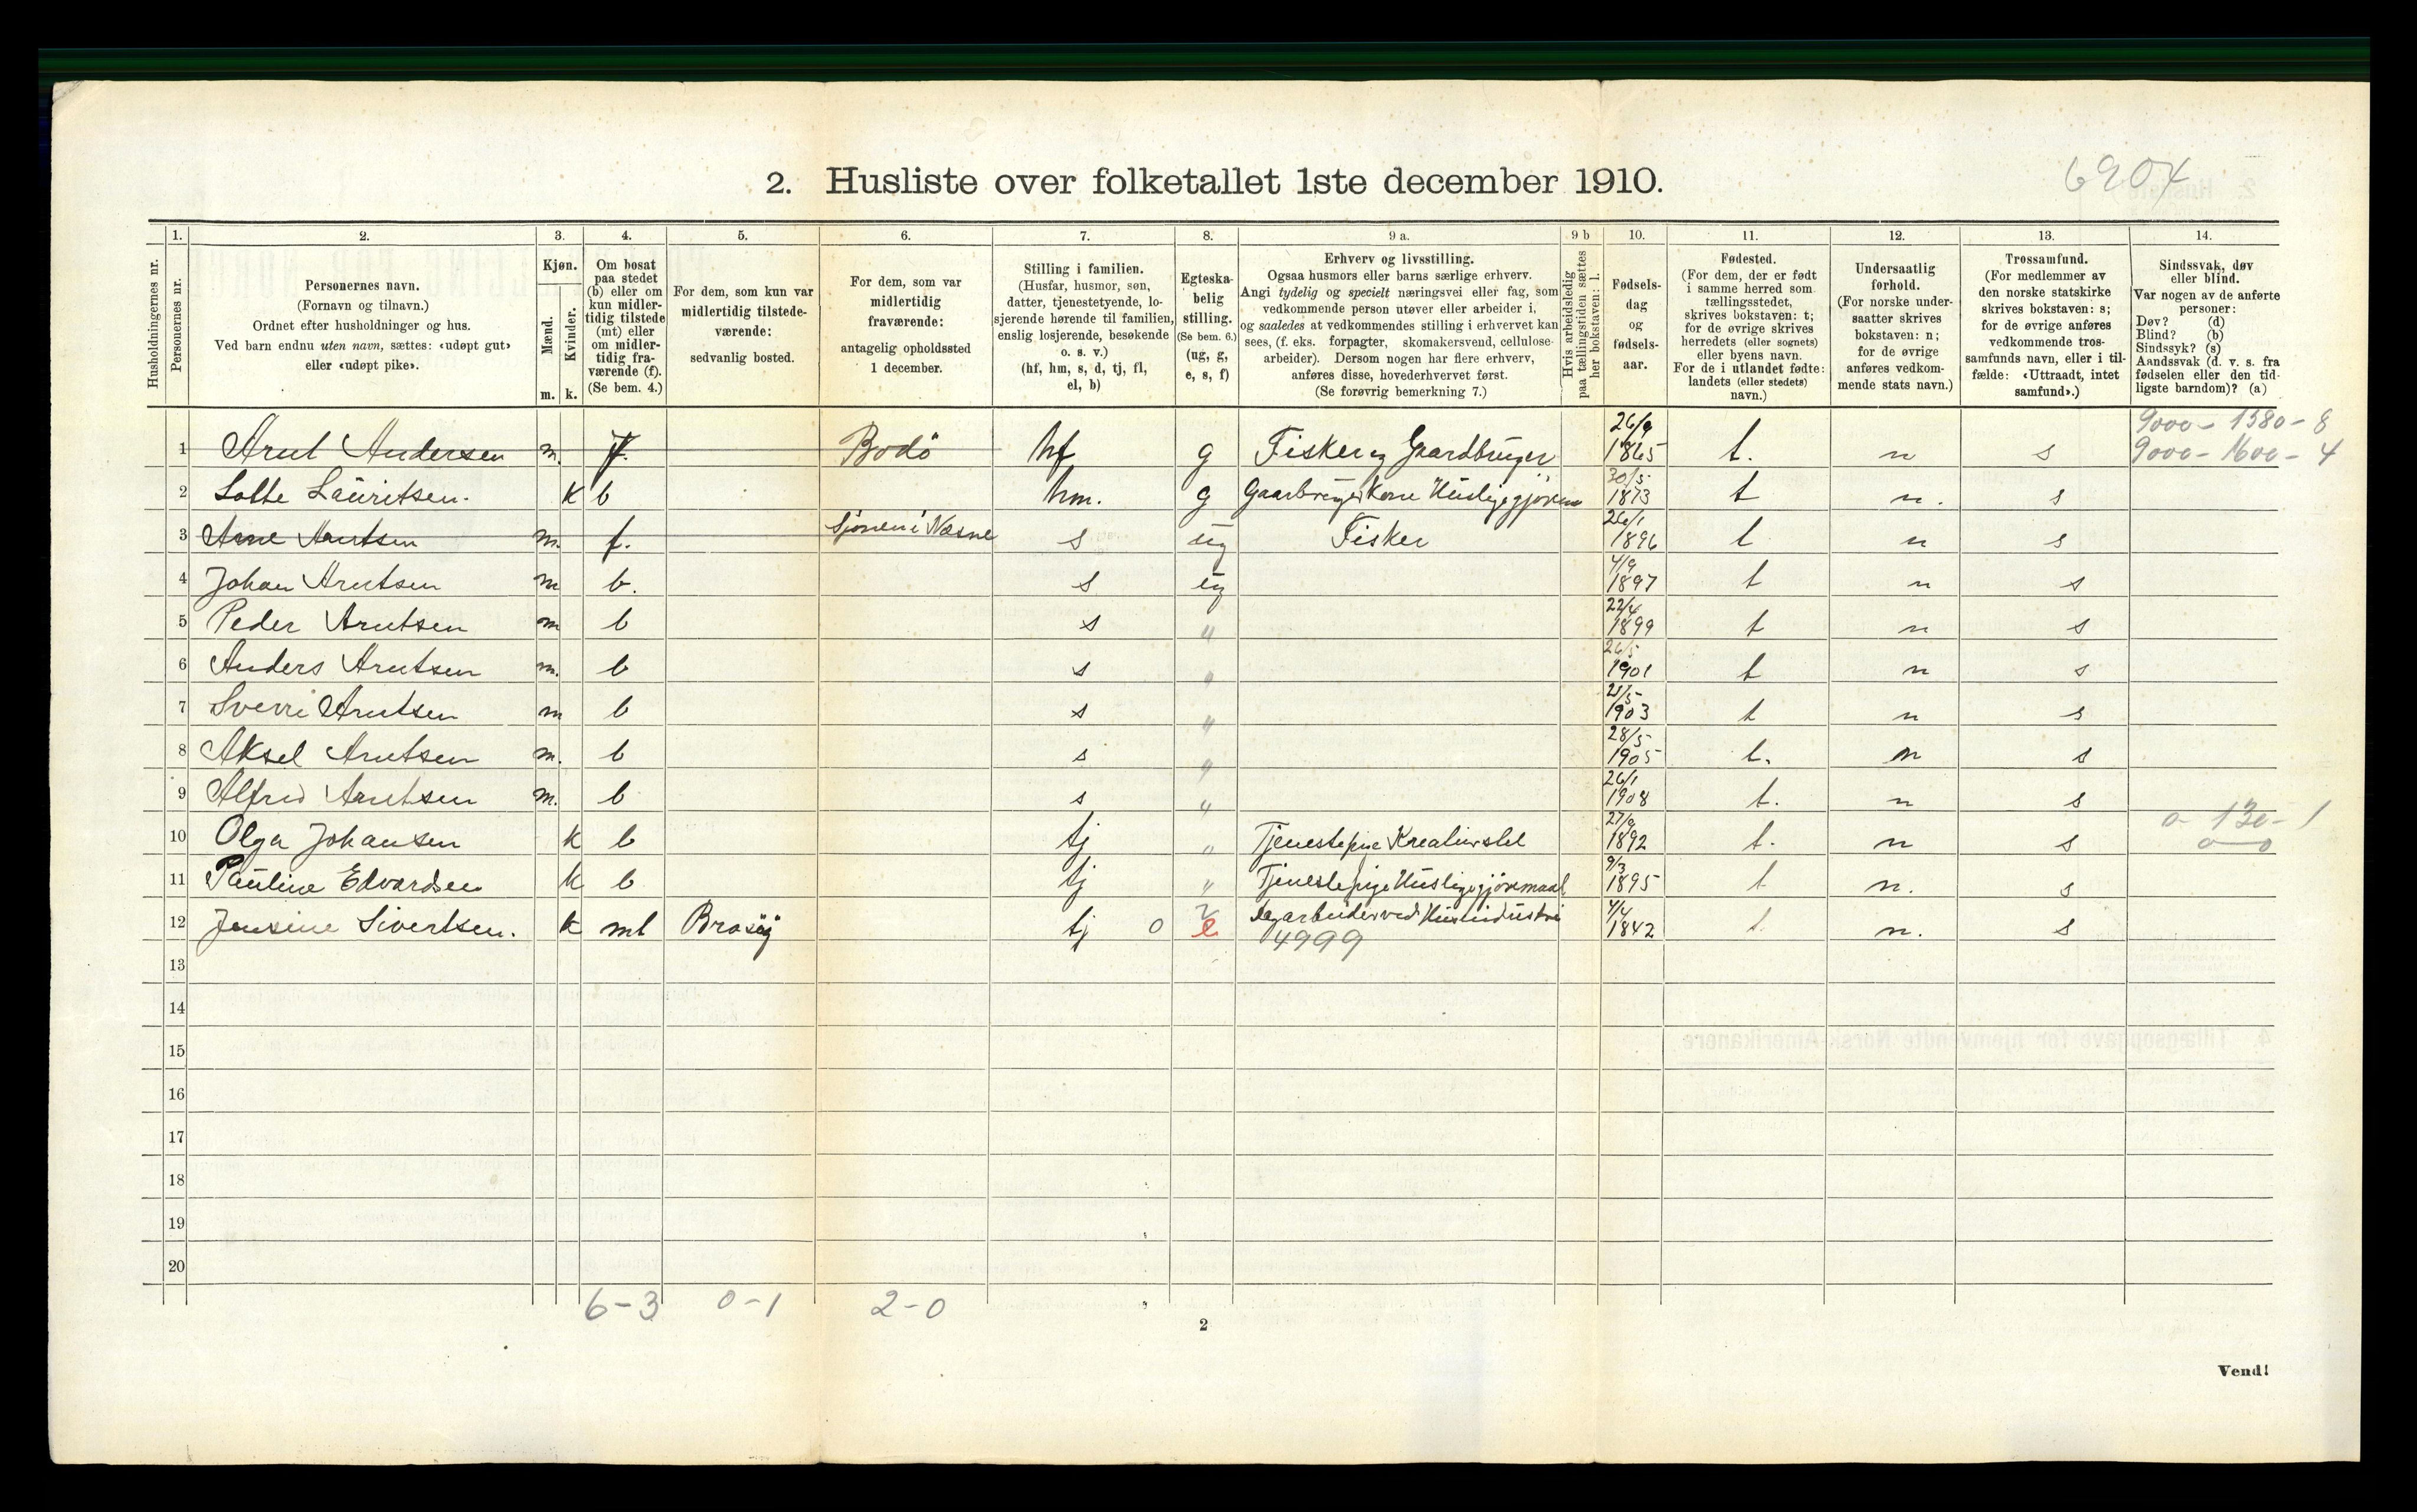 2. Husliste over folketallet 1ste december 1910.
6904
1. 2. 3. 4. 5. 6. 7. 8. 9 a. 9 b 10. 11. 12. 13. 14.
Husholdningernes nr.
Personernes nr.
Personernes navn.
(Fornavn og tilnavn.)
Ordnet efter husholdninger og hus.
Ved barn endnu uten navn, sættes: «udøpt gut»
eller «udøpt pike».
Kjøn.
Mænd.
Kvinder.
m. k.
Om bosat
paa stedet
(b) eller om
kun midler-
tidig tilstede
(mt) eller
om midler-
tidig fra-
værende (f).
(Se bem. 4.)
For dem, som kun var
midlertidig tilstede-
værende:
sedvanlig bosted.
For dem, som var
midlertidig
fraværende:
antagelig opholdssted
1 december.
Stilling i familien.
(Husfar, husmor, søn,
datter, tjenestetyende, lo-
sjerende hørende til familien,
enslig losjerende, besøkende
o. s. v.)
(hf, hm, s, d, tj, fl,
el, b)
Egteska-
belig
stilling.
(Se bem. 6.)
(ug, g,
e, s, f)
Erhverv og livsstilling.
Ogsaa husmors eller barns særlige erhverv.
Angi tydelig og specielt næringsvei eller fag, som
vedkommende person utøver eller arbeider i,
og saaledes at vedkommendes stilling i erhvervet kan
sees, (f. eks. forpagter, skomakersvend, cellulose-
arbeider). Dersom nogen har flere erhverv,
anføres disse, hovederhvervet først.
(Se forøvrig bemerkning 7.)
Hvis arbeidsledig
paa tællingstiden sættes
her bokstaven: l.
Fødsels-
dag
og
fødsels-
aar.
Fødested.
(For dem, der er født
i samme herred som
tællingsstedet,
skrives bokstaven: t;
for de øvrige skrives
herredets (eller sognets)
eller byens navn.
For de i utlandet fødte:
landets (eller stedets)
navn.)
Undersaatlig
forhold.
(For norske under-
saatter skrives
bokstaven: n;
for de øvrige
anføres vedkom-
mende stats navn.)
Trossamfund.
(For medlemmer av
den norske statskirke
skrives bokstaven: s;
for de øvrige anføres
vedkommende tros-
samfunds navn, eller i til-
fælde: «Uttraadt, intet
samfund».)
Sindssvak, døv
eller blind.
Var nogen av de anførte
personer:
Døv? (d)
Blind? (b)
Sindssyk? (s)
Aandssvak (d. v. s. fra
fødselen eller den tid-
ligste barndom)? (a)
9000 - 1380 - 8
1 Arnt Andersen m. f. Bodö hf g Fisker og Gaardbruger 26/9 1865 t. n s 9000 - 1600 - 4
2 Lotte Lauritsen. k b hm. g Gaarbrugerkone 30/5 1873 t n. s
3 Arne Arntsen m. f. Sjonen i Næsne s ug Fisker 26/1 1896 t n s
4 Johan Arntsen m b. s ug 4/9 1897 t n s
5 Peder Arntsen m b s " 22/4 1899 t n s
6 Anders Arntsen m. b s " 26/5 1901 t n s
7 Sverre Arntsen m b s " 21/5 1903 t n s
8 Aksel Arntsen m. b s " 28/5 1905 t. n s
9 Alfred Arntsen m. b s " 26/1 1908 t. n s
10 Olga Johansen k b tj " Tjenestepige Kreaturstel 27/9 1892 t. n s 0 - 130 - 1
0 - 0
11 Pauline Edvardsen k b tj " Tjenestepige Husligegjøremaal 9/3 1895 t n. s
12 Jensine Sivertsen. k mt Brasöy tj 0 e Dagarbeider ved Husindustri 4/4 1842 t. n. s
4999
13
14
15
16
17
18
19
20
6 - 3 0 - 1 2 - 0
2
Vend!